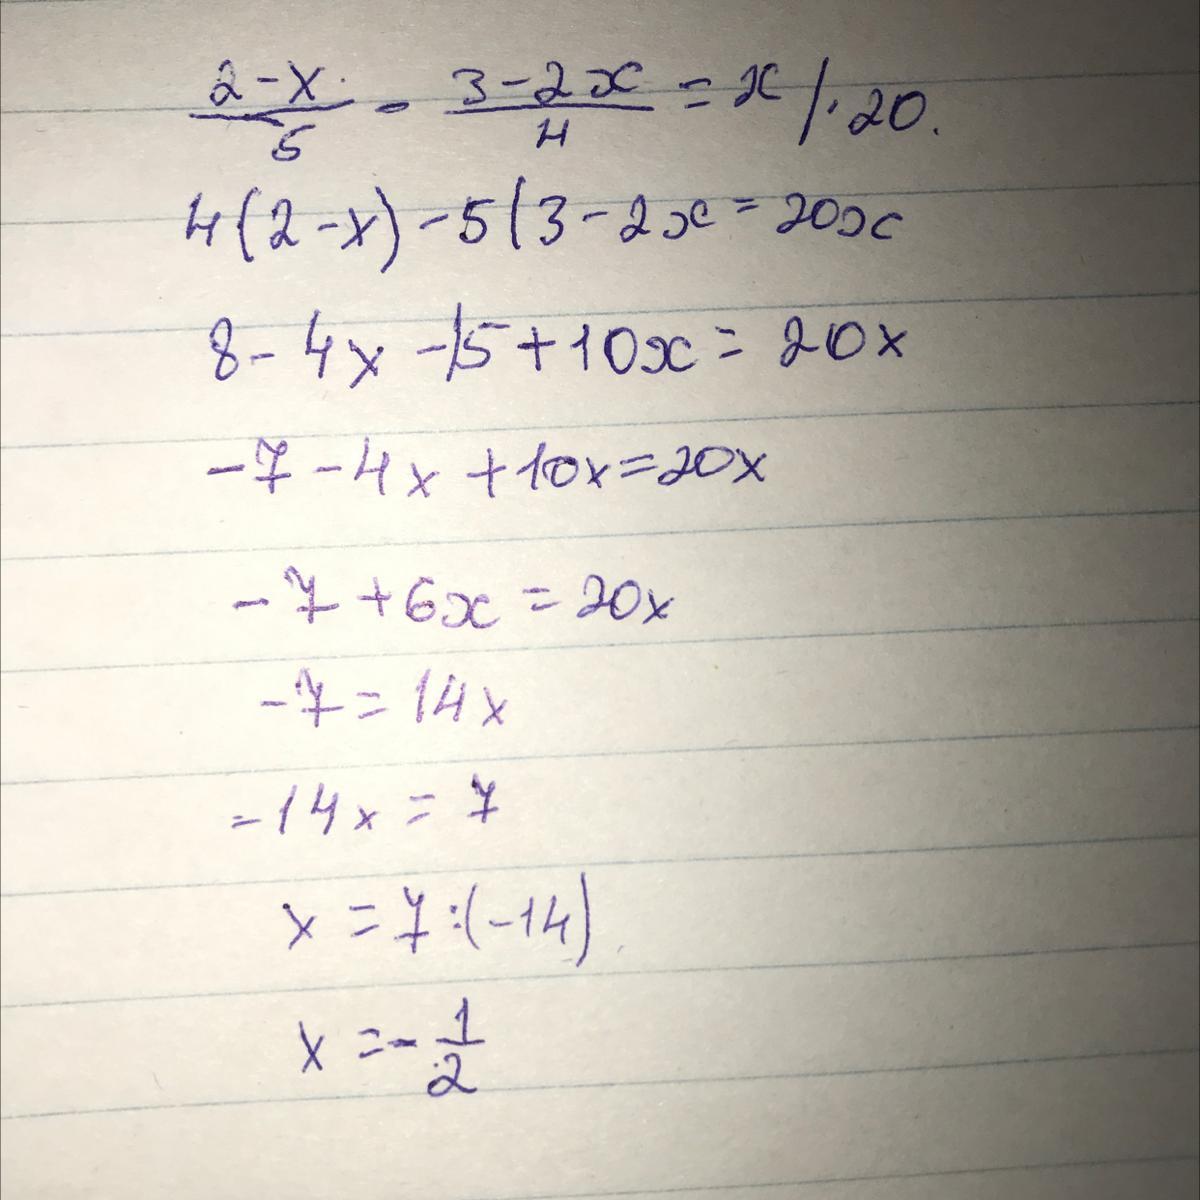 2-x/5 - 3-2x/4 = x /·20.
4(2-x)-5(3-2x=20x
8-4x-15+10x=20x
-7-4x+10x=20x
-7+6x=20x
-7=14x
-14x=7
x=7:(-14)
x=-1/2